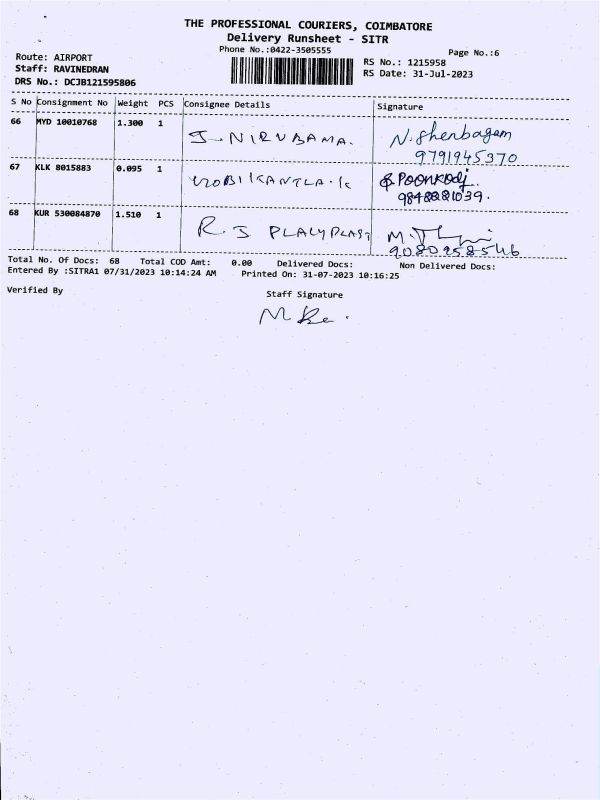 THE PROFESSIONAL COURIERS, COIMBATORE
Delivery Runsheet - SITR
Phone No.:0422-3505555
Page No.:6
Route: AIRPORT
Staff: RAVINEDRAN
DRS No.: DCJB121595806
RS No.: 1215958
RS Date: 31-Jul-2023
S No Consignment No Weight PCS Consignee Details Signature
66 MYD 10010768 1.300 1 J. NIRUBAMA. N. Shenbagam
9791945370
67 KLK 8015883 0.095 1 Poonkodj.
68 KUR 530084870 1.510 1 R. J PLALYPLAST
9080958546
Total No. Of Docs: 68 Total COD Amt: 0.00 Delivered Docs: Non Delivered Docs:
Entered By :SITRA1 07/31/2023 10:14:24 AM Printed On: 31-07-2023 10:16:25
Verified By Staff Signature